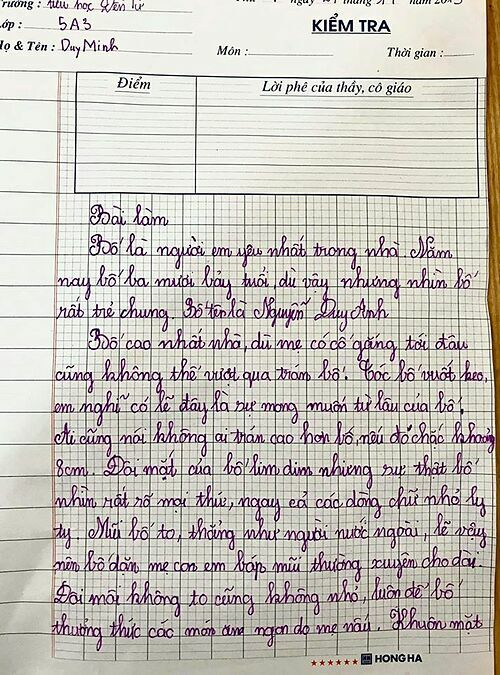 Trường : tiểu học
Lớp : 5A3
Họ & Tên : Duy Minh
KIỂM TRA
Môn :
Thời gian :
Điểm
Lời phê của thầy, cô giáo
Bài làm
Bố là người em yêu nhất trong nhà. Năm
nay bố ba mươi bảy tuổi, dù vậy nhưng nhìn bố
rất trẻ chung. Bố tên là Nguyễn Duy Anh
Bố cao nhất nhà, dù mẹ có cố gắng tới đâu
cũng không thể vượt qua trán bố. Tóc bố vuốt keo,
em nghĩ có lẽ đây là sự mong muốn từ lâu của bố.
Ai cũng nói không ai trán cao hơn bố, nếu đo chắc khoảng
8cm. Đôi mắt của bố lim dim nhưng sự thật bố
nhìn rất rõ mọi thứ, ngay cả các dòng chữ nhỏ ly
ty. Mũi bố to, thẳng như người nước ngoài, lẽ vậy
nên bố dặn mẹ con em bóp mũi thường xuyên cho dài.
Đôi môi không to cũng không nhỏ, luôn để bố
thưởng thức các món ăn ngon do mẹ nấu. Khuôn mặt
HONG HA